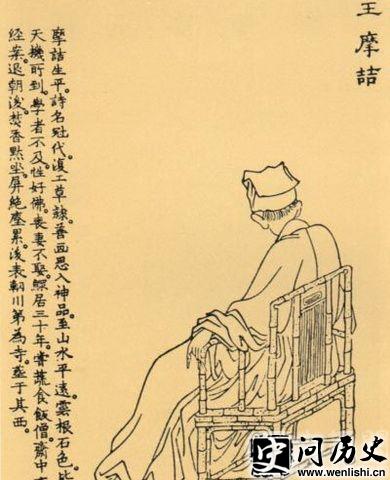 王摩詰
摩詰生平。詩名冠代。復工草隸。善画。思入神品。至山水平遠。雲根石色。
天機所到。學者不及。性好佛。喪妻不娶。鰥居三十年。嘗蔬食飯僧。齋中
經案。退朝後。焚香黙坐。屏絶塵累。後表輞川第為寺。葬于其西。
史问历史
www.wenlishi.com